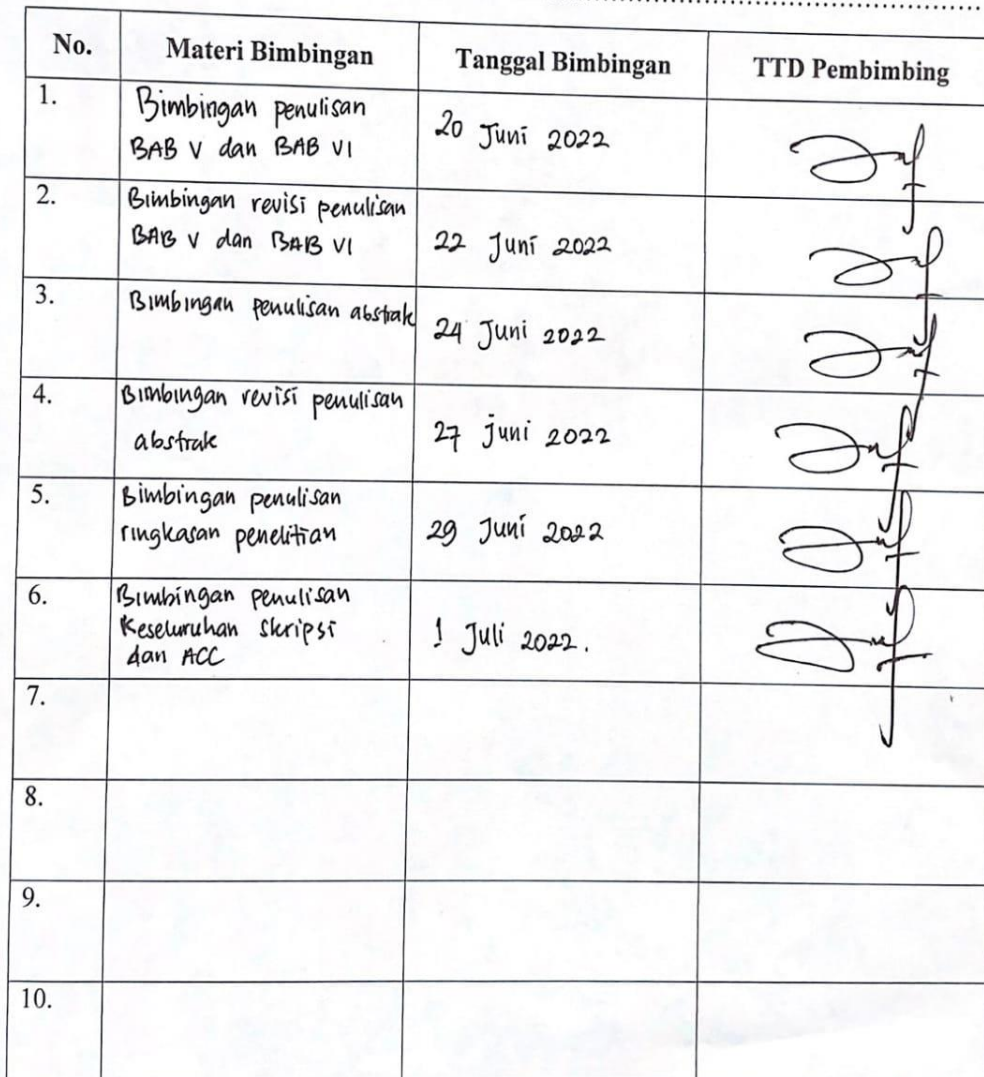 No. Materi Bimbingan Tanggal Bimbingan TTD Pembimbing
1. Bimbingan penulisan
BAB V dan BAB VI 20 Juni 2022
2. Bimbingan revisi penulisan
BAB V dan BAB VI 22 Juni 2022
3. Bimbingan penulisan abstrak 24 Juni 2022
4. Bimbingan revisi penulisan
abstrak 27 Juni 2022
5. Bimbingan penulisan
ringkasan penelitian 29 Juni 2022
6. Bimbingan penulisan
Keseluruhan skripsi 1 Juli 2022.
dan ACC
7.
8.
9.
10.